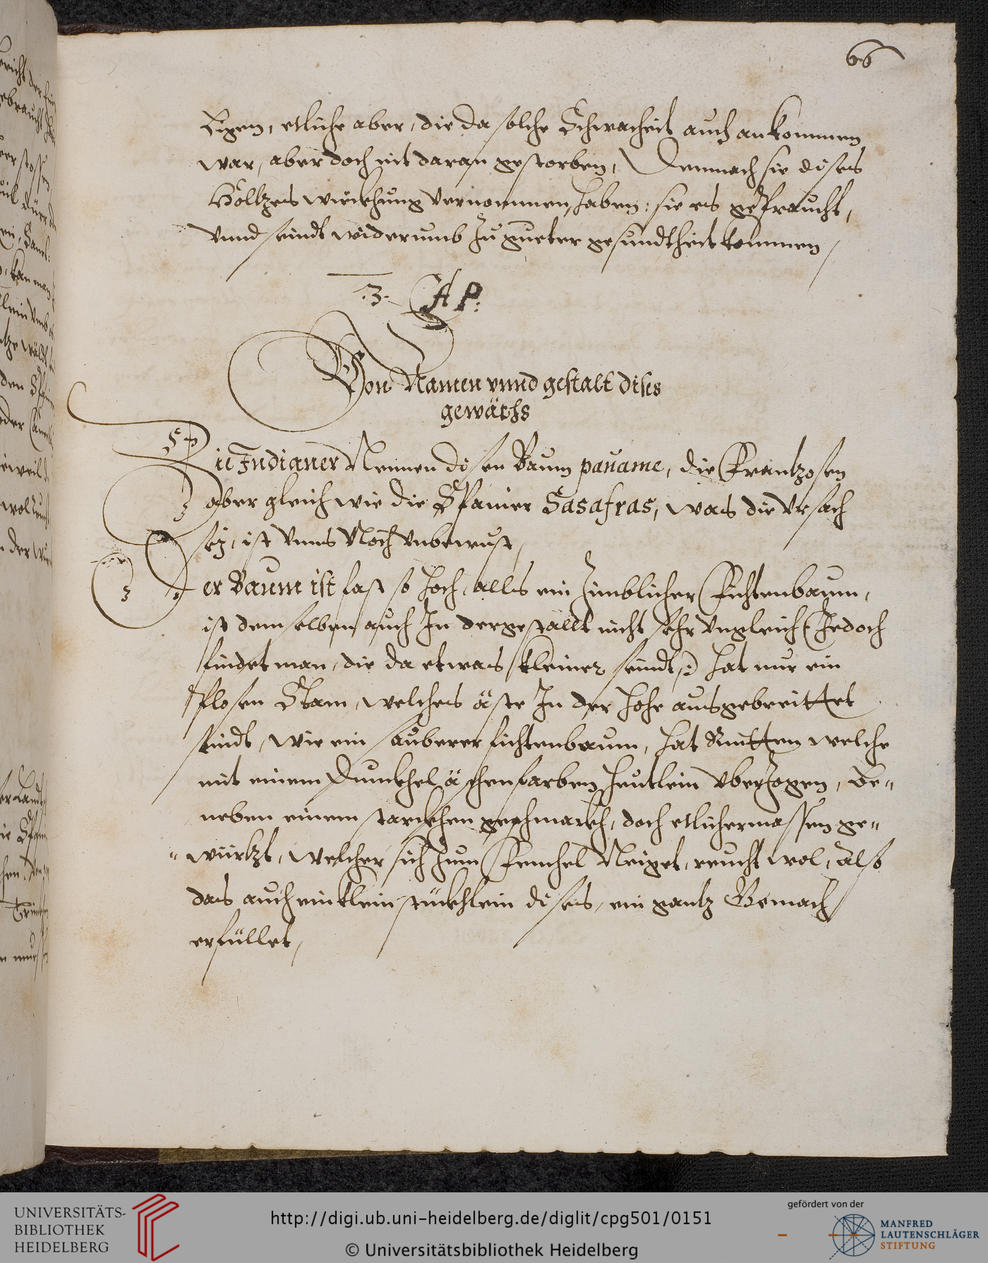 66
ligen, etliche aber, die da solche Schwacheit auch ankommen
war, aber doch nit daran gestorben, Demnach sie dises
Holtzes würckhung vernommen haben: sie es gebraucht,
vnnd seindt widerumb zu gueter gesundtheit kommen
.3. CAP:
Von Namen vnnd gestalt dises
gewächs
Die Indianer Nennen disen Baum pauame, die Frantzosen
aber gleich wie die Spanier Sasafras, was die vrsach
sej, ist vnns Noch vnbewust,
Der Baum ist fast so hoch, alls ein zimblicher Fichtenbaum,
ist demselben auch In der gestallt nicht sehr vngleich (Jedoch
findet man, die da etwas kleiner seindt) hat nur ein
blosen Stam, welches äste In der höhe ausgebreittet
sindt, wie ein sauberer fichtenbaum, hat Rintten welche
mit einem Dunckhel äschenfarben heutlein vberzogen, Be-
neben einem starckhen geschmackh, doch etlichermassen ge-
würtzt, welcher sich zum Fenchel Neiget, reucht wol, also
das auch ein klein stückhlein dises, ein gantz Gemach
erfüllet,
UNIVERSITÄTS-
BIBLIOTHEK
HEIDELBERG
http://digi.ub.uni-heidelberg.de/diglit/cpg501/0151
© Universitätsbibliothek Heidelberg
gefördert von der
MANFRED
LAUTENSCHLÄGER
STIFTUNG